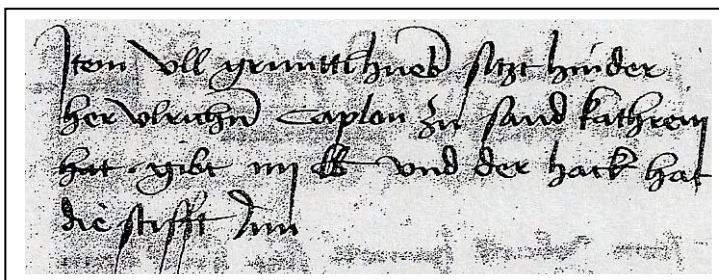 Item Ull grunttlhueb sitzt hinder
her vlrichn Caplon zu sand kathrein
hat . gibt iiij ß vnd der hack hat
die stifft Inn